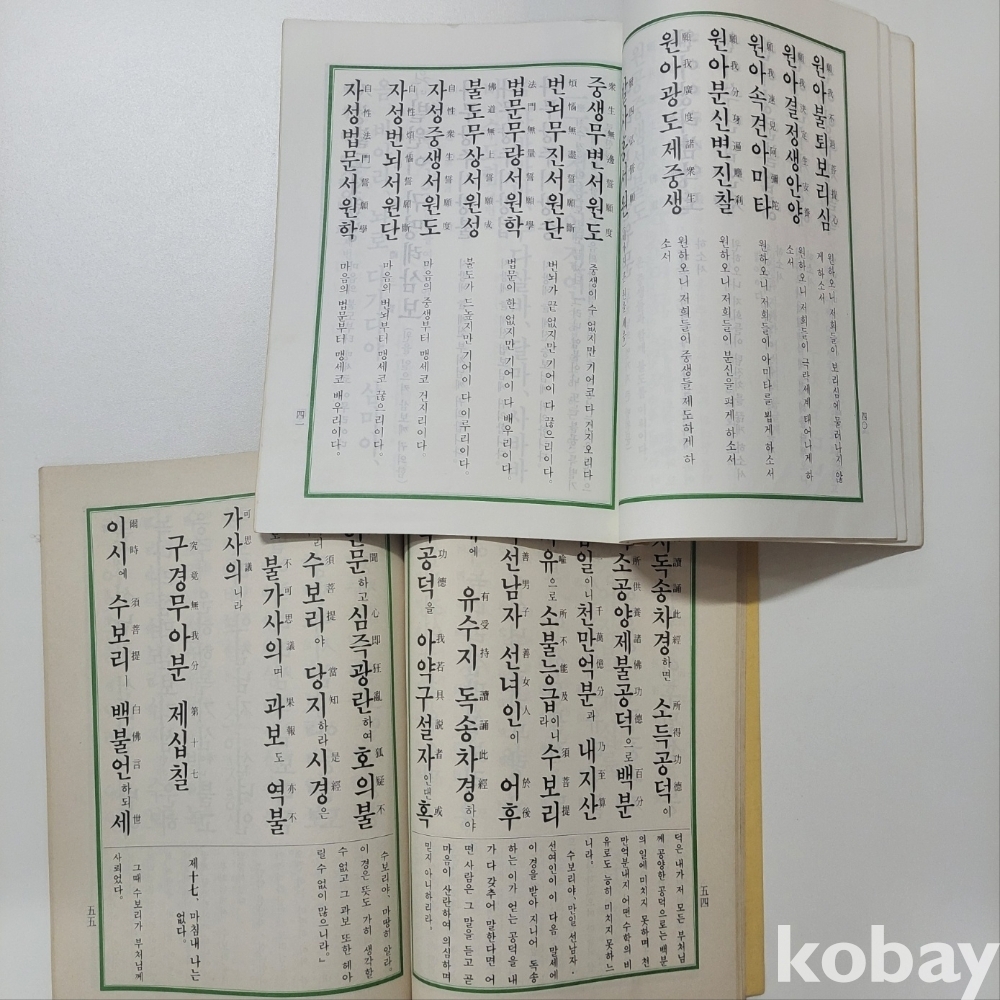 원아불퇴보리심
願我不退菩提心
원하오니 저희들이 보리심에 물러나지 않
게 하소서
원아결정생안양
願我決定生安養
원하오니 저희들이 극락세계 태어나게 하
소서
원아속견아미타
願我速見阿彌陀
원하오니 저희들이 아미타를 뵙게 하소서
원아분신변진찰
願我分身遍塵刹
원하오니 저희들이 분신을 펴게 하소서
원아광도제중생
願我廣度諸衆生
원하오니 저희들이 중생들 제도하게 하
소서
四〇
중생무변서원도
衆生無邊誓願度
중생이 수 없지만 기어코 다 건지오리다
번뇌무진서원단
煩惱無盡誓願斷
번뇌가 끝 없지만 기어이 다 끊으리이다。
법문무량서원학
法門無量誓願學
법문이 한 없지만 기어이 다 배우리이다。
불도무상서원성
佛道無上誓願成
불도가 드높지만 기어이 다 이루리이다。
자성중생서원도
自性衆生誓願度
마음의 중생부터 맹세코 건지리이다
자성번뇌서원단
自性煩惱誓願斷
마음의 번뇌부터 맹세코 끊으리이다。
자성법문서원학
自性法門誓願學
마음의 법문부터 맹세코 배우리이다。
四一
독송차경하면 소득공덕이
讀誦此經 所得功德
소공양제불공덕으로 백분
所供養諸佛功德 百分
일이니 천만억분과 내지산
千萬億分 乃至算
유으로 소불능급이니라 수보리
喩 所不能及 須菩提
선남자 선녀인이 어후
善男子 善女人 於後
에 유수지 독송차경하야
有受持 讀誦此經
공덕을 아약구설자인댄 혹
功德 我若具說者 或
덕은 내가 저 모든 부처님
께 공양한 공덕으로는 백분
의 일에 미치지 못하며 천
만억분내지 어떤 수학의 비
유로도 능히 미치지 못하느
니라。
수보리야、만일 선남자·
선여인이 이 다음 말세에
이 경을 받아 지니어 독송
하는 이가 얻는 공덕을 내
가 다 갖추어 말한다면 어
떤 사람은 그 말을 듣고 곧
마음이 산란하여 의심하며
믿지 아니하리라。
五四
인문하고 심즉광란하여 호의불
聞 心即狂亂 狐疑不
수보리야 당지하라 시경은
須菩提 當知 是經
불가사의며 과보도 역불
不可思議 果報 亦不
가사의니라
可思議
구경무아분 제십칠
究竟無我分 第十七
이시에 수보리ㅣ 백불언하되 세
爾時 須菩提 白佛言 世
수보리야、마땅히 알라。
이 경은 뜻도 가히 생각할
수 없고 그 과보 또한 헤아
릴 수 없이 많으니라。」
제十七、마침내 나는
없다。
그때 수보리가 부처님께
사뢰었다。
五五
kobay